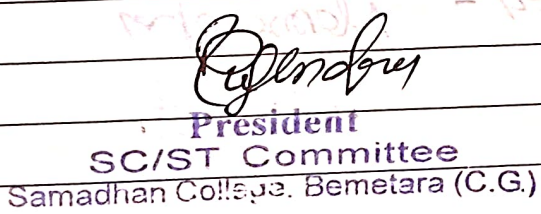 President
SC/ST Committee
Samadhan College. Bemetara (C.G.)